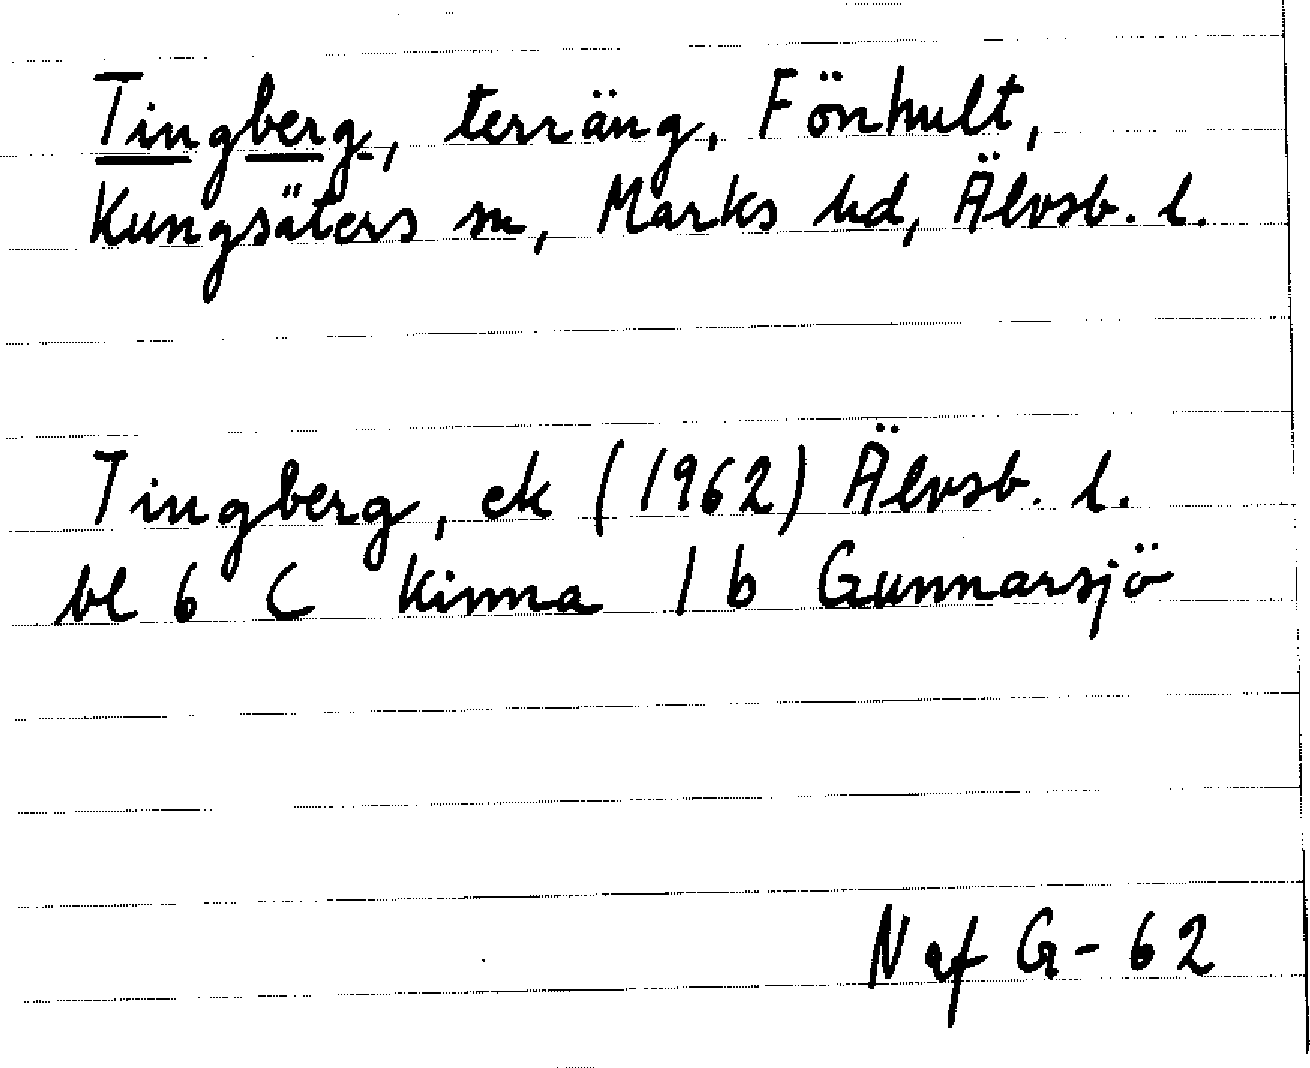 Tingberg, terräng, Fönhult,
Kungsäters sn, Marks hd, Älvsb. l.
Tingberg, ek (1962) Älvsb. l.
bl 6 C Kinna 1 b Gunnarsjö
Naf G-62